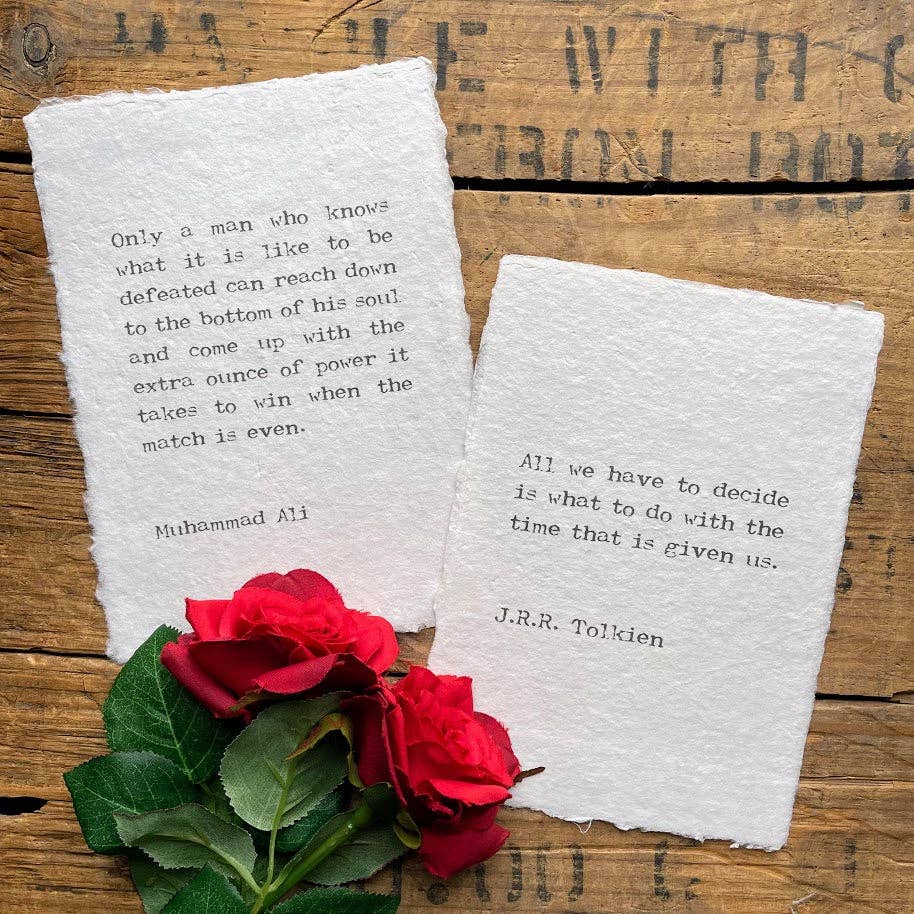 WITH
Only a man who knows
what it is like to be
defeated can reach down
to the bottom of his soul
and come up with the
extra ounce of power it
takes to win when the
match is even.
Muhammad Ali
All we have to decide
is what to do with the
time that is given us.
J.R.R. Tolkien